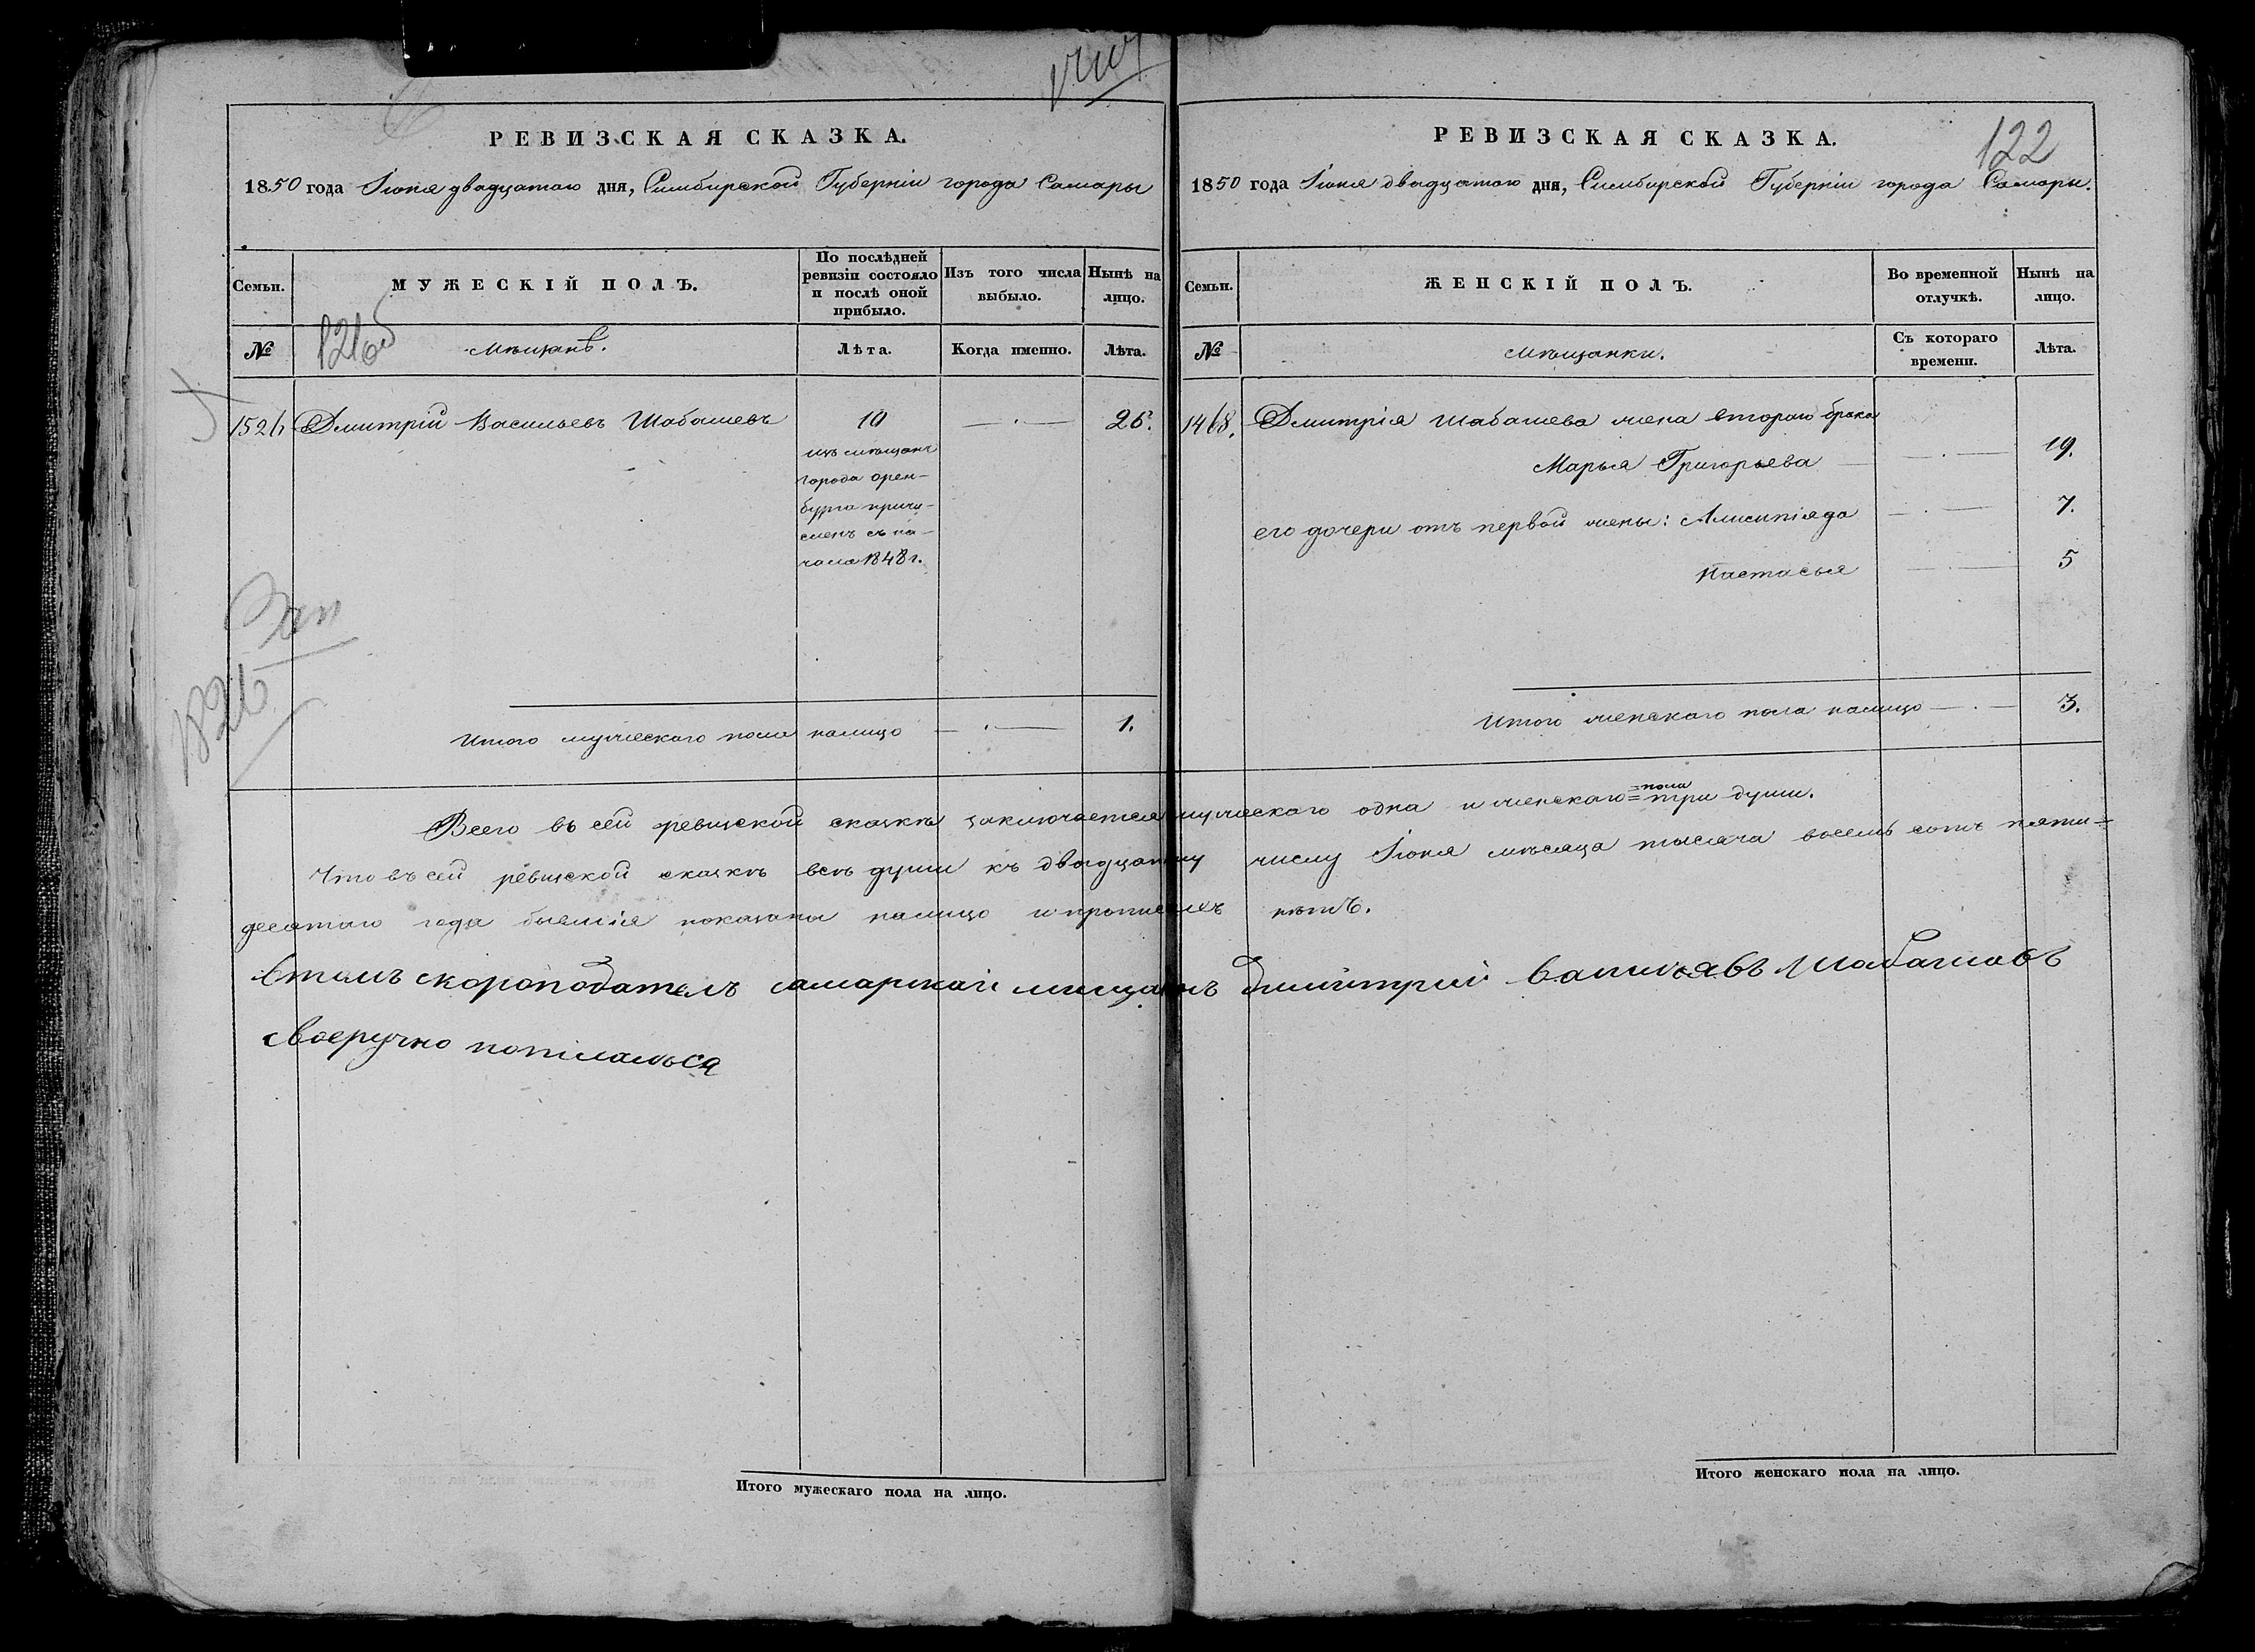 РЕВИЗСКАЯ СКАЗКА.
1850 года Іюня двадцатаго дня, Симбирской Губерніи города Самары
Семьи.
МУЖЕСКІЙ ПОЛЪ.
По послѣдней ревизіи состояло и послѣ оной прибыло.
Изъ того числа выбыло.
Нынѣ на лицо.
№
Мѣщанъ.
Лѣта.
Когда именно.
Лѣта.
Дмитрій Васильевъ Шабашевъ
10
26.
изъ мѣщанъ
города Орен-
бурга причи-
сленъ съ на-
чала 1848 г.
Итого мужескаго пола налицо
1.
РЕВИЗСКАЯ СКАЗКА.
122
1850 года Іюня двадцатаго дня, Симбирской Губерніи города Самары.
Семьи.
ЖЕНСКІЙ ПОЛЪ.
Во временной отлучкѣ.
Нынѣ на лицо.
№
Мѣщанки.
Съ котораго времени.
Лѣта.
1468.
Дмитрія Шабашева жена втораго брака
Марья Григорьева
19.
его дочери отъ первой жены: Алимпіяда
7.
Настасья
5
Итого женскаго пола налицо
3.
Всего въ сей ревизской сказкѣ заключается мужескаго одна и женскаго =пола= три души.
Что въ сей ревизской сказкѣ всѣ души къ двадцатому числу Іюня мѣсяца тысяча восемь сотъ пяти-
десятаго года бывшія показаны налицо и прописныхъ нѣтъ.
самарскай мищанъ Димитрий Шабашовъ
своеручно
Итого мужескаго пола на лицо.
Итого женскаго пола на лицо.